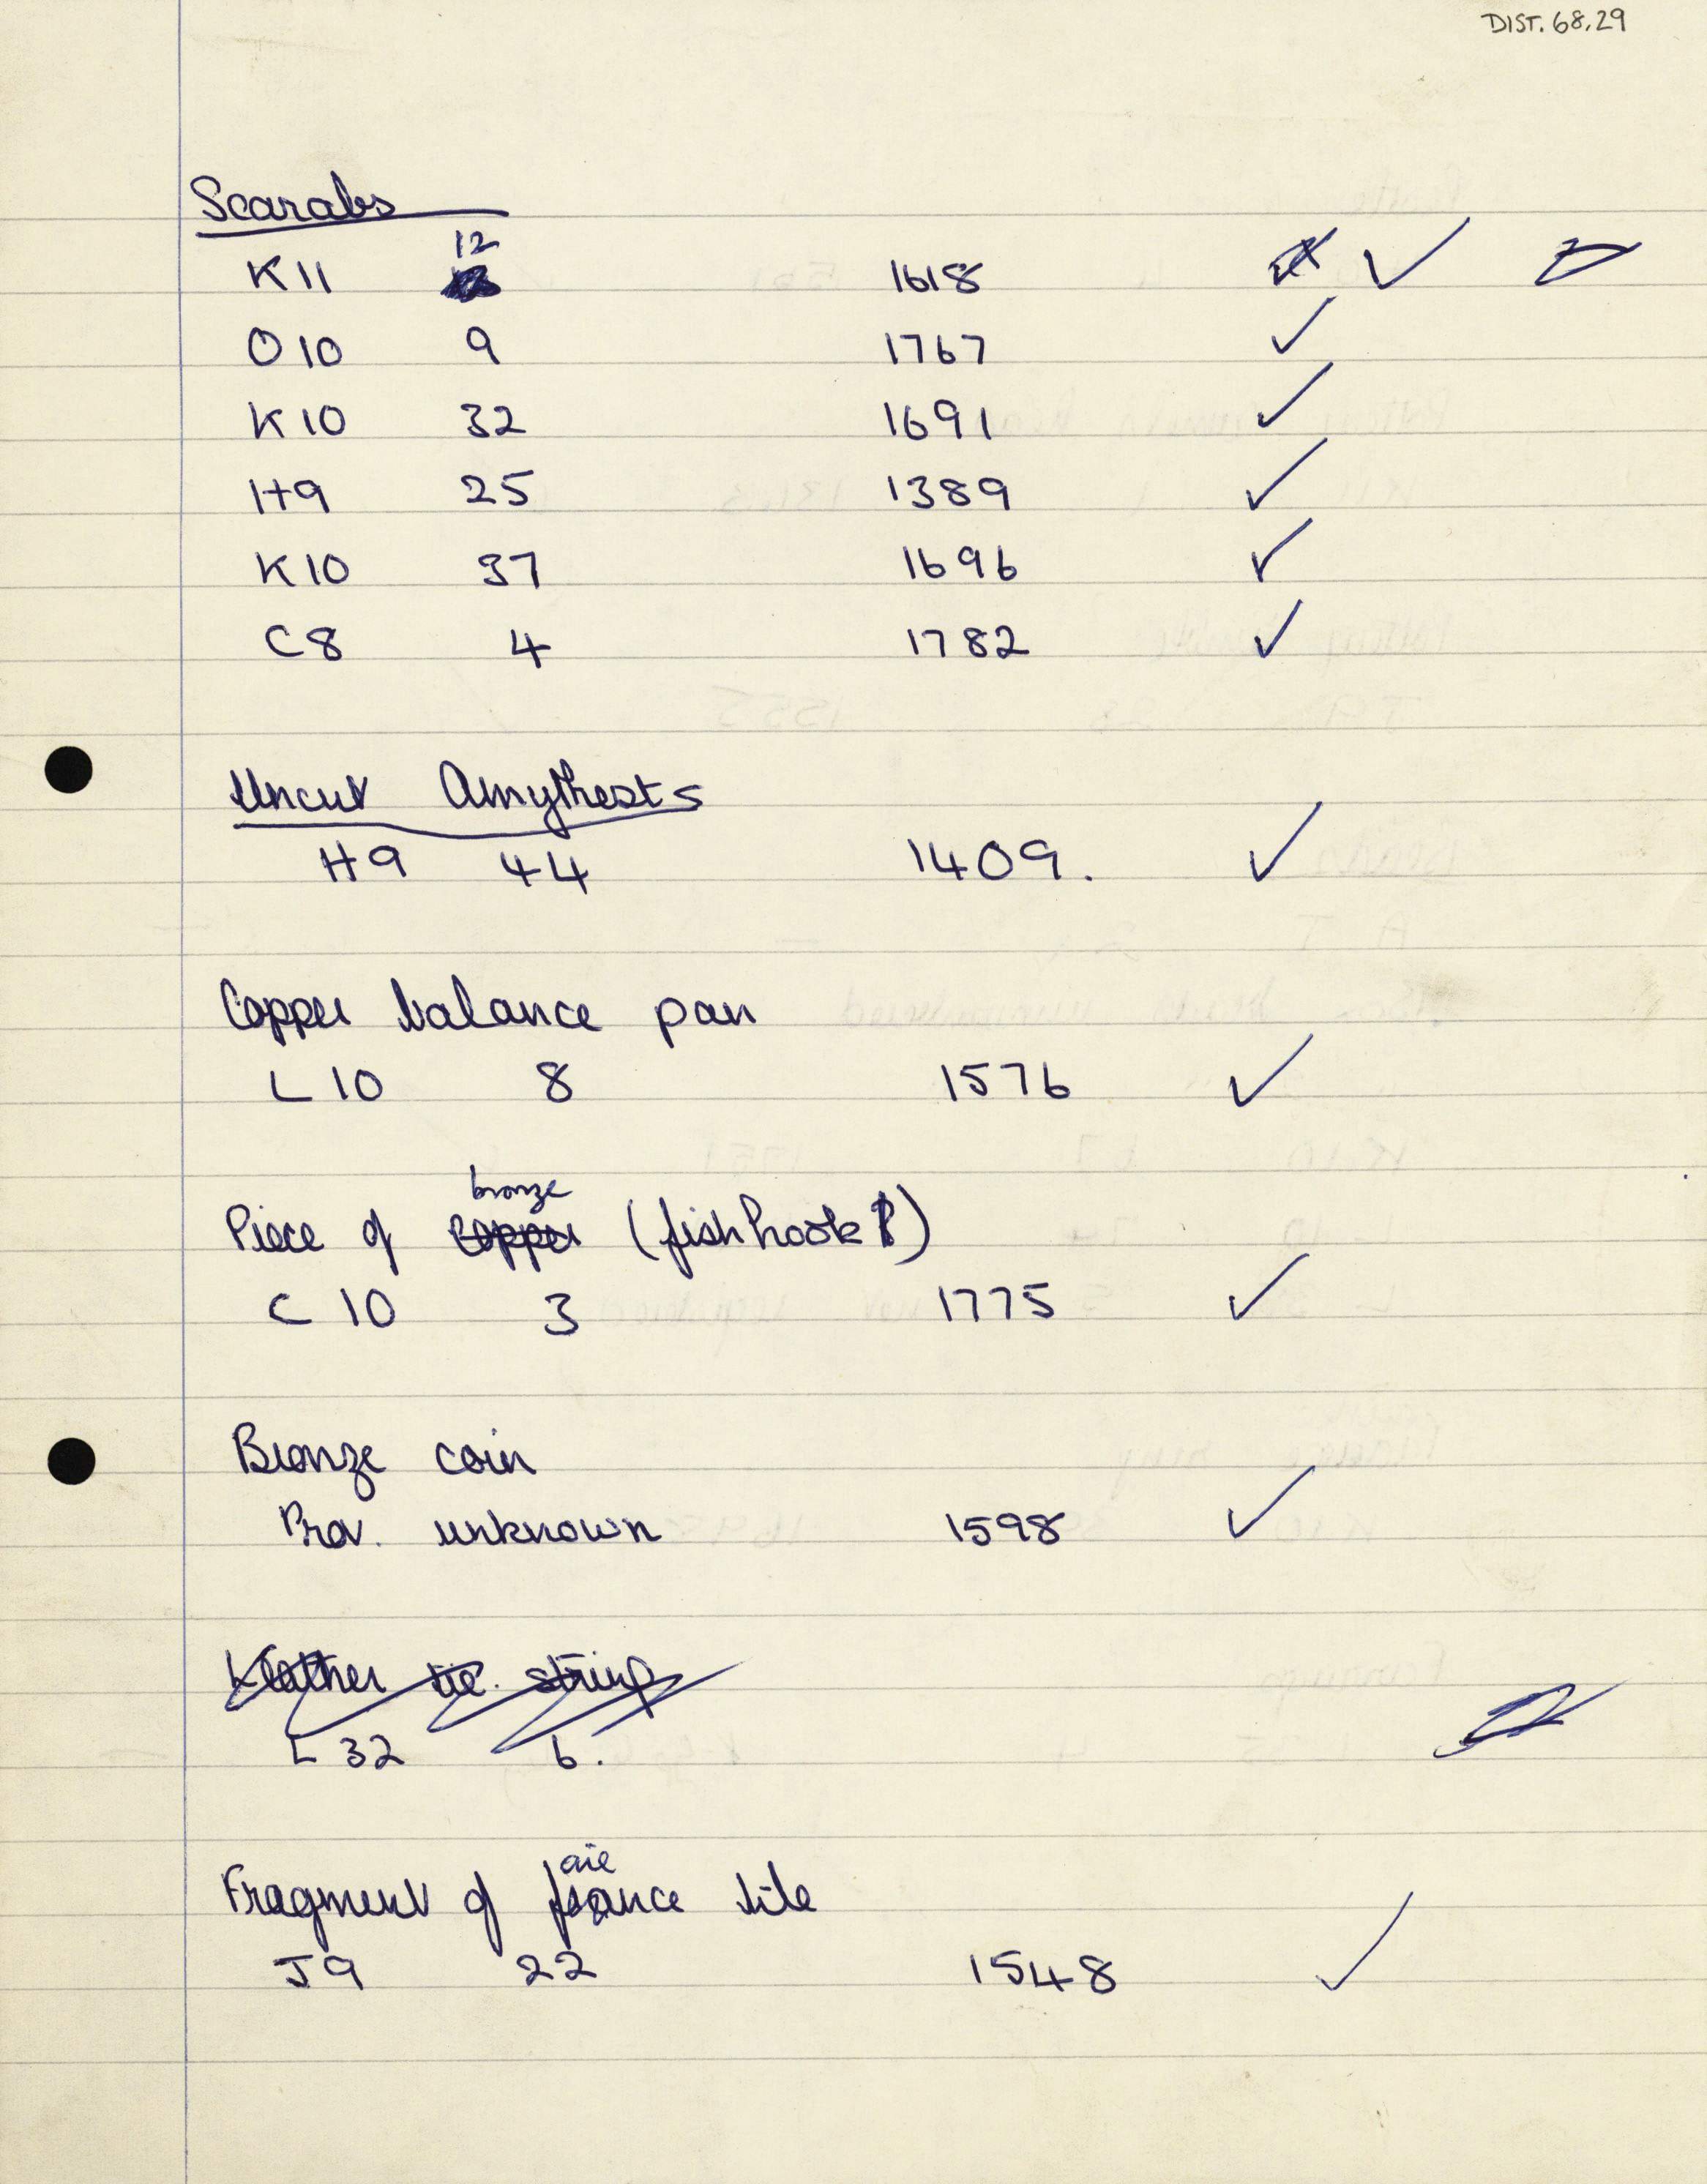 DIST. 68.29
Scarabs
K11 12 1618
O10 9 1767
K10 32 1691
H9 25 1389
K10 37 1696
C8 4 1782
Uncut Amythests
H9 44 1409.
Copper balance pan
L10 8 1576
Piece of copper bronze (fishhook?)
C10 3 1775
Bronze coin
Prov. unknown 1598
Leather tie. string
L32 6.
Fragment of faiance tile
J9 22 1548